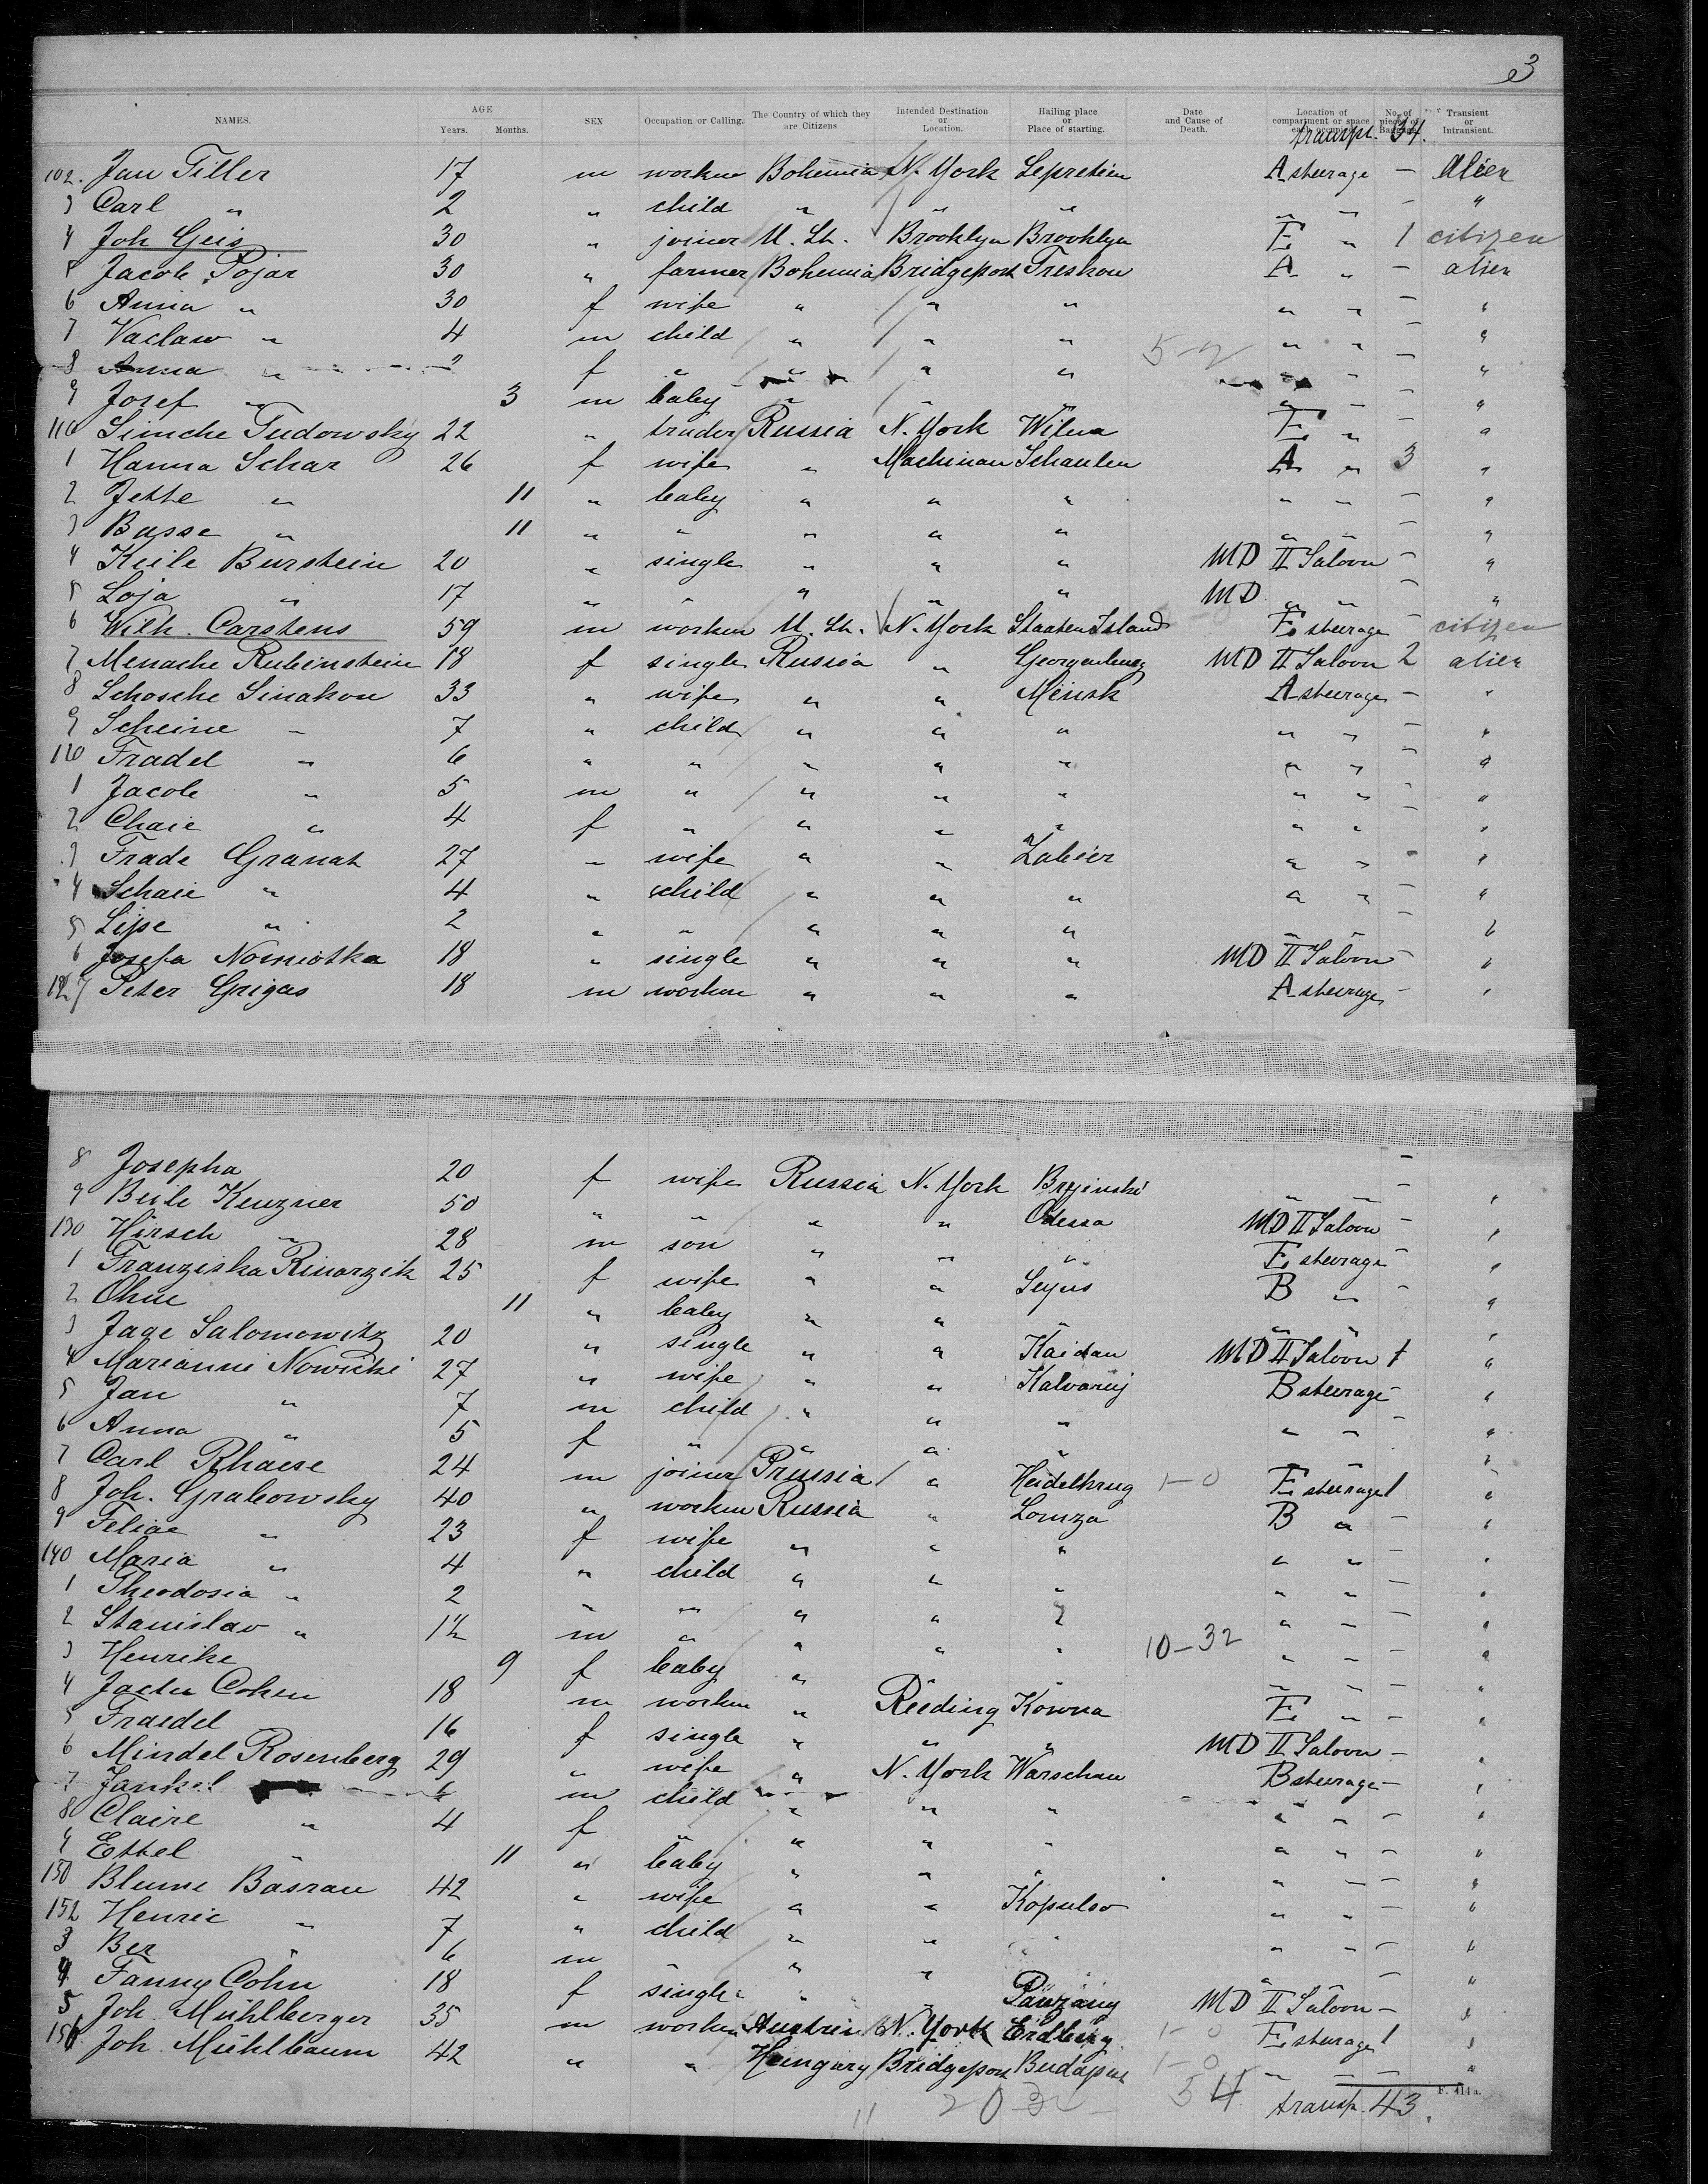 3
NAMES. AGE Years. Months. SEX Occupation or Calling. The Country of which they are Citizens Intended Destination or Location. Hailing place or Place of starting. Date and Cause of Death. Location of compartment or space No. of pieces of Transient or Intransient.
transpt. 34.
102. Jan Tiller 17 m worker Bohemia N. York A steerage — Alien
3 Carl " 2 " child " " " " " — "
4 Joh Geis 30 " joiner U. St. Brooklyn Brooklyn E " 1 citizen
5 Jacob Pojar 30 " farmer Bohemia Bridgeport Treskow A " — alien
6 Anna " 30 f wife " " " " " — "
7 Vaclaw " 4 m child " " " " " — "
8 Anna " 2 f " " " " 5-2 " " — "
9 Josef " 3 m baby " " " " " — "
110 Simche Tudowsky 22 " trader Russia N. York Wilna E " — "
1 Hanna Schar 26 f wife " Schaulen A " 3 "
2 Jette " 11 " baby " " " " " — "
3 Basse " 11 " " " " " " " — "
4 Keile Burstein 20 " single " " " MD II Saloon — "
5 Loja " 17 " " " " " MD " " — "
6 Wilh. Carstens 59 m worker U. St. N. York Staaten Island E steerage — citizen
7 Menache Rubinstein 18 f single Russia " Georgenburg MD II Saloon 2 alien
8 Schosche Sinakow 33 " wife " " Minsk A steerage — "
9 Scheine " 7 " child " " " " " — "
120 Fradel " 6 " " " " " " " — "
1 Jacob " 5 m " " " " " " — "
2 Chaie " 4 f " " " " " " — "
3 Frade Granat 27 " wife " " Zabier " " — "
4 Schaie " 4 " child " " " " " — "
5 Lipe " 2 " " " " " " " — "
6 Josefa Nomiotka 18 " single " " " MD II Saloon — "
127 Peter Grigas 18 m worker " " " A steerage — "
8 Josepha 20 f wife Russia N. York Bryinski " " — "
9 Beile Keuzner 50 " " " " Odessa MD II Saloon — "
130 Hirsch " 28 m son " " " E steerage — "
1 Franziska Rinarzik 25 f wife " " Seyns B " — "
2 Ohne 11 " baby " " " " " "
3 Jage Salomowitz 20 " single " " Kaidan MD II Saloon 1 "
4 Marianni Nowicki 27 " wife " " Kalvarij B steerage — "
5 Jan " 7 m child " " " " " — "
6 Anna " 5 f " " " " " " "
7 Carl Rhaese 24 m joiner Prussia " Heidelkrug 1-0 E steerage 1 "
8 Joh. Grabowsky 40 " worker Russia " Lomza B " — "
9 Feliae " 23 f wife " " " " " — "
140 Maria " 4 " child " " " " " — "
1 Theodosia " 2 " " " " " " " — "
2 Stanislav " 1½ m " " " " 10-32 " " — "
3 Henrike 9 f baby " " " " " — "
4 Cohen 18 m worker " Reeding Kowna E " — "
5 Fraedel 16 f single " " " MD II Saloon — "
6 Mindel Rosenberg 29 " wife " N. York Warschau B steerage — "
7 Jankel 6 m child " " " " " — "
8 Claire " 4 f " " " " " " — "
9 Ettel " 11 " baby " " " " " — "
150 Blume Basrau 42 " wife " " Kopulso " " — "
152 Henrie " 7 " child " " " " " — "
3 Ber " 6 m " " " " " — "
4 Fanny Cohn 18 f single " " MD II Saloon — "
5 Joh. Mühlberger 35 m worker Austria N. York Erdberg 1-0 E steerage 1 "
156 Joh. Mühlbaum 42 " " Hungary Bridgeport Budapest 1-0 " " — "
F. 414a.
11 20 3 54 transp. 43.